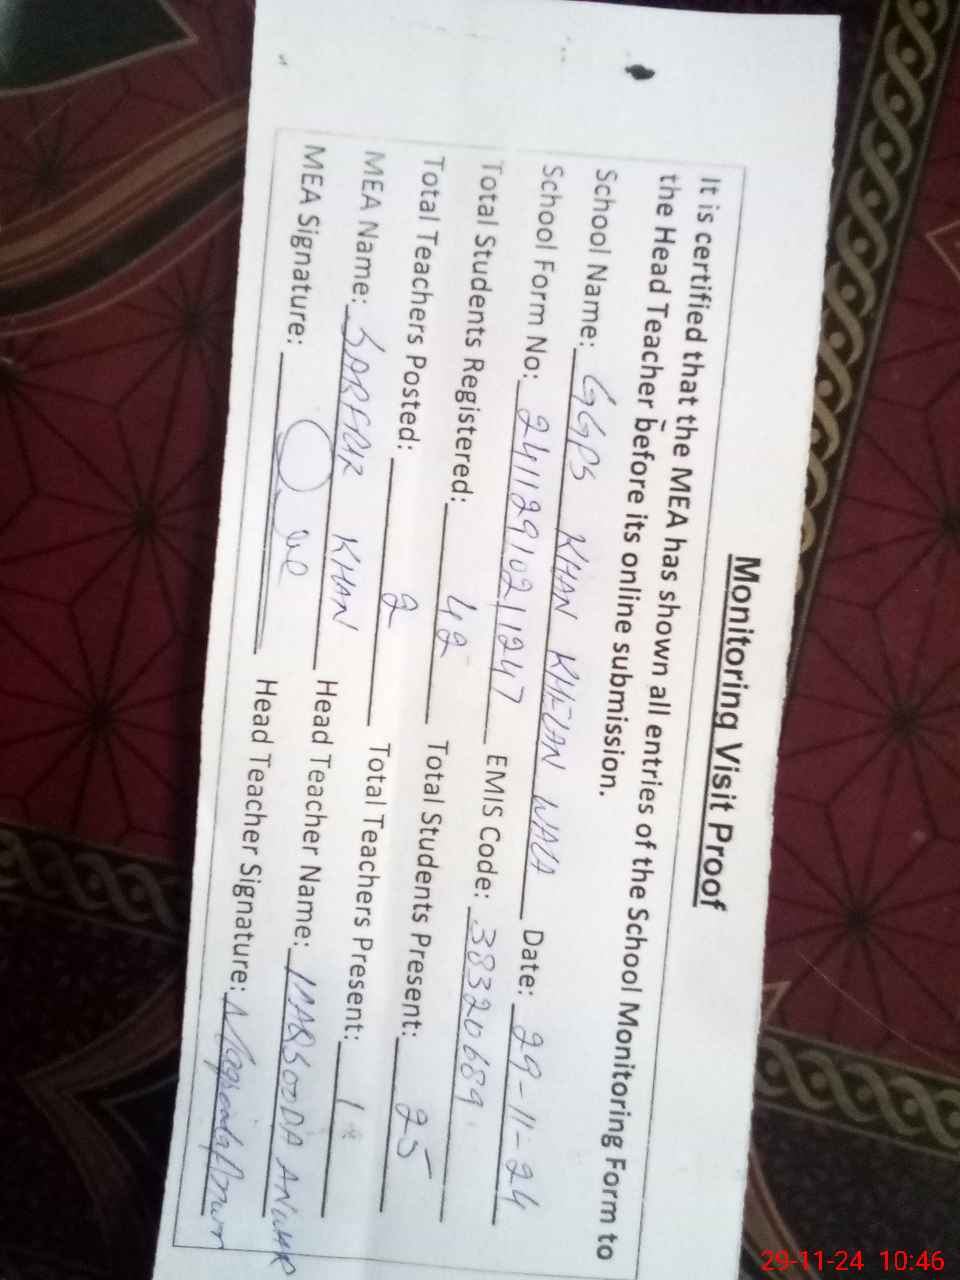 Monitoring Visit Proof
It is certified that the MEA has shown all entries of the School Monitoring Form to
the Head Teacher before its online submission.
School Name: GGPS KHAN KHELAN WALA Date: 29-11-24
School Form No: 241129102 1247 EMIS Code: 38320689
Total Students Registered: 42 Total Students Present: 25
Total Teachers Posted: 2 Total Teachers Present: 1
MEA Name: KHAN Head Teacher Name: MAQSOODA
MEA Signature: Head Teacher Signature:
29-11-24 10:46